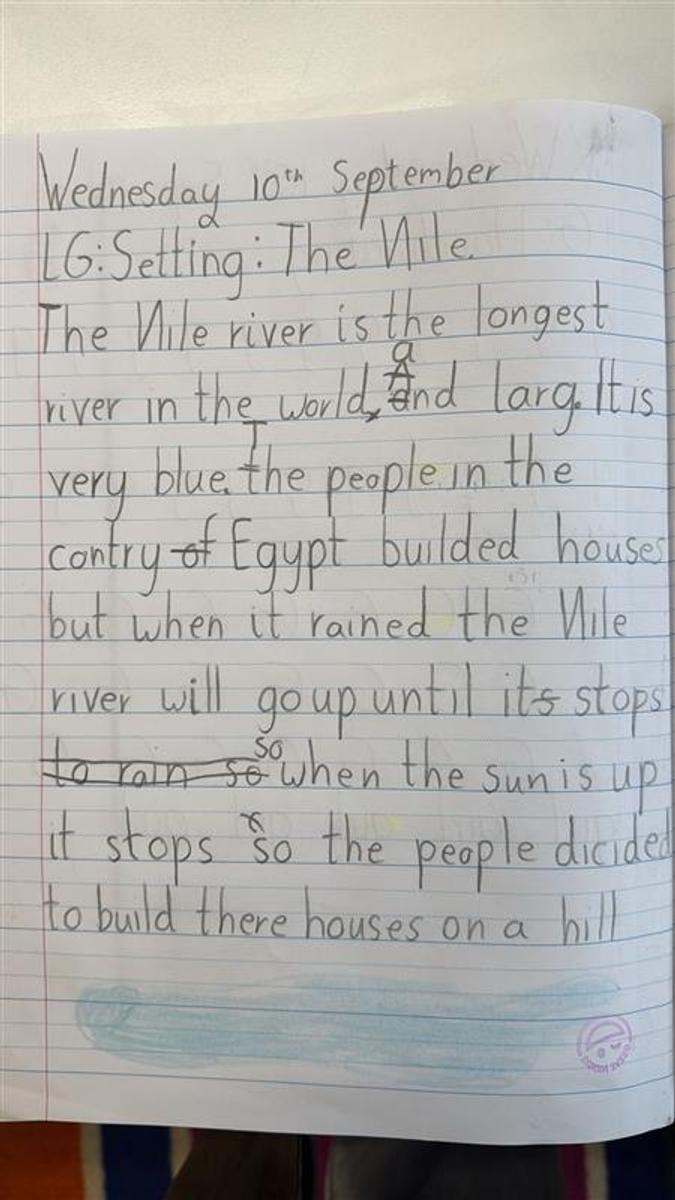 Wednesday 10th September
LG: Setting: The Nile.
The Nile river is the longest
river in the world, and larg. It is
very blue. The people in the
contry of Egypt builded houses
but when it rained the Nile
river will go up until its stops
to rain so so when the sun is up
it stops so the people dicided
to build there houses on a hill